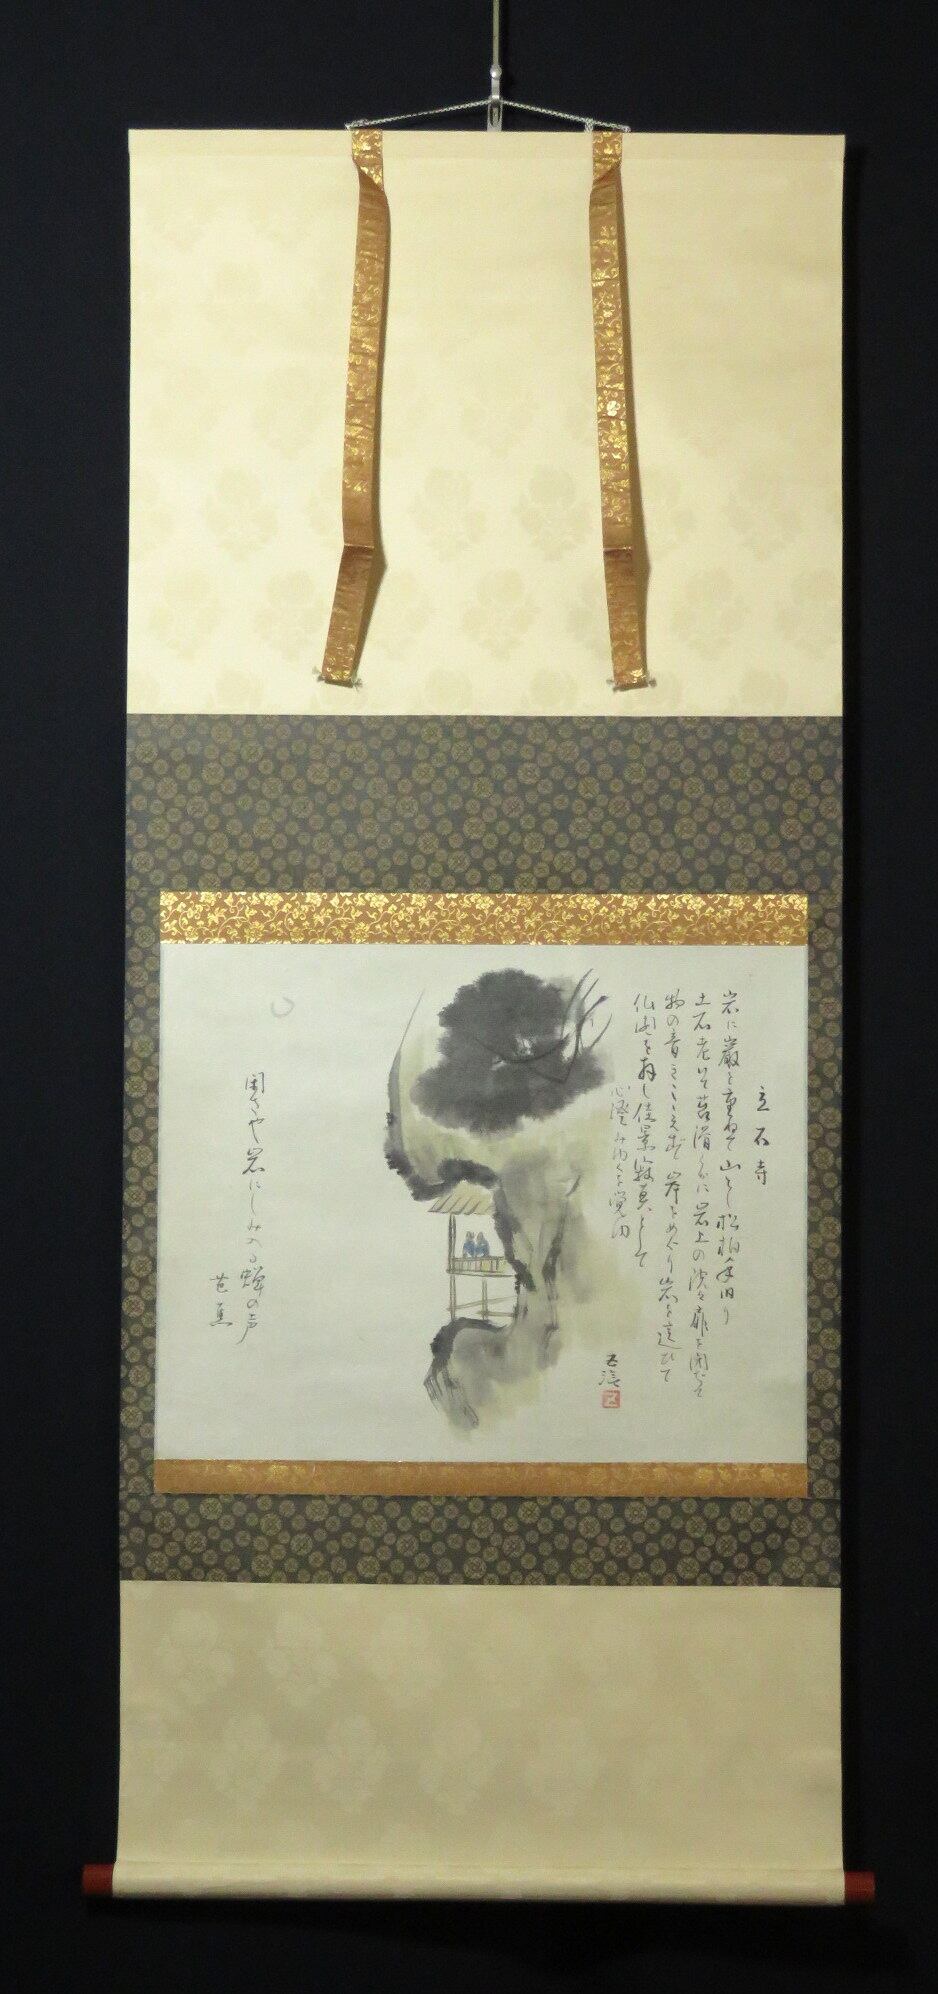 立石寺
岩に巌を重ねて山とし松柏年旧り
土石老いて苔滑らかに岩上の院々扉を閉ぢて
物の音きこえず岸をめぐり岩を這ひて
仏閣を拝し佳景寂寞として
心澄みゆくを覚ゆ
閑さや岩にしみ入る蝉の声
芭蕉